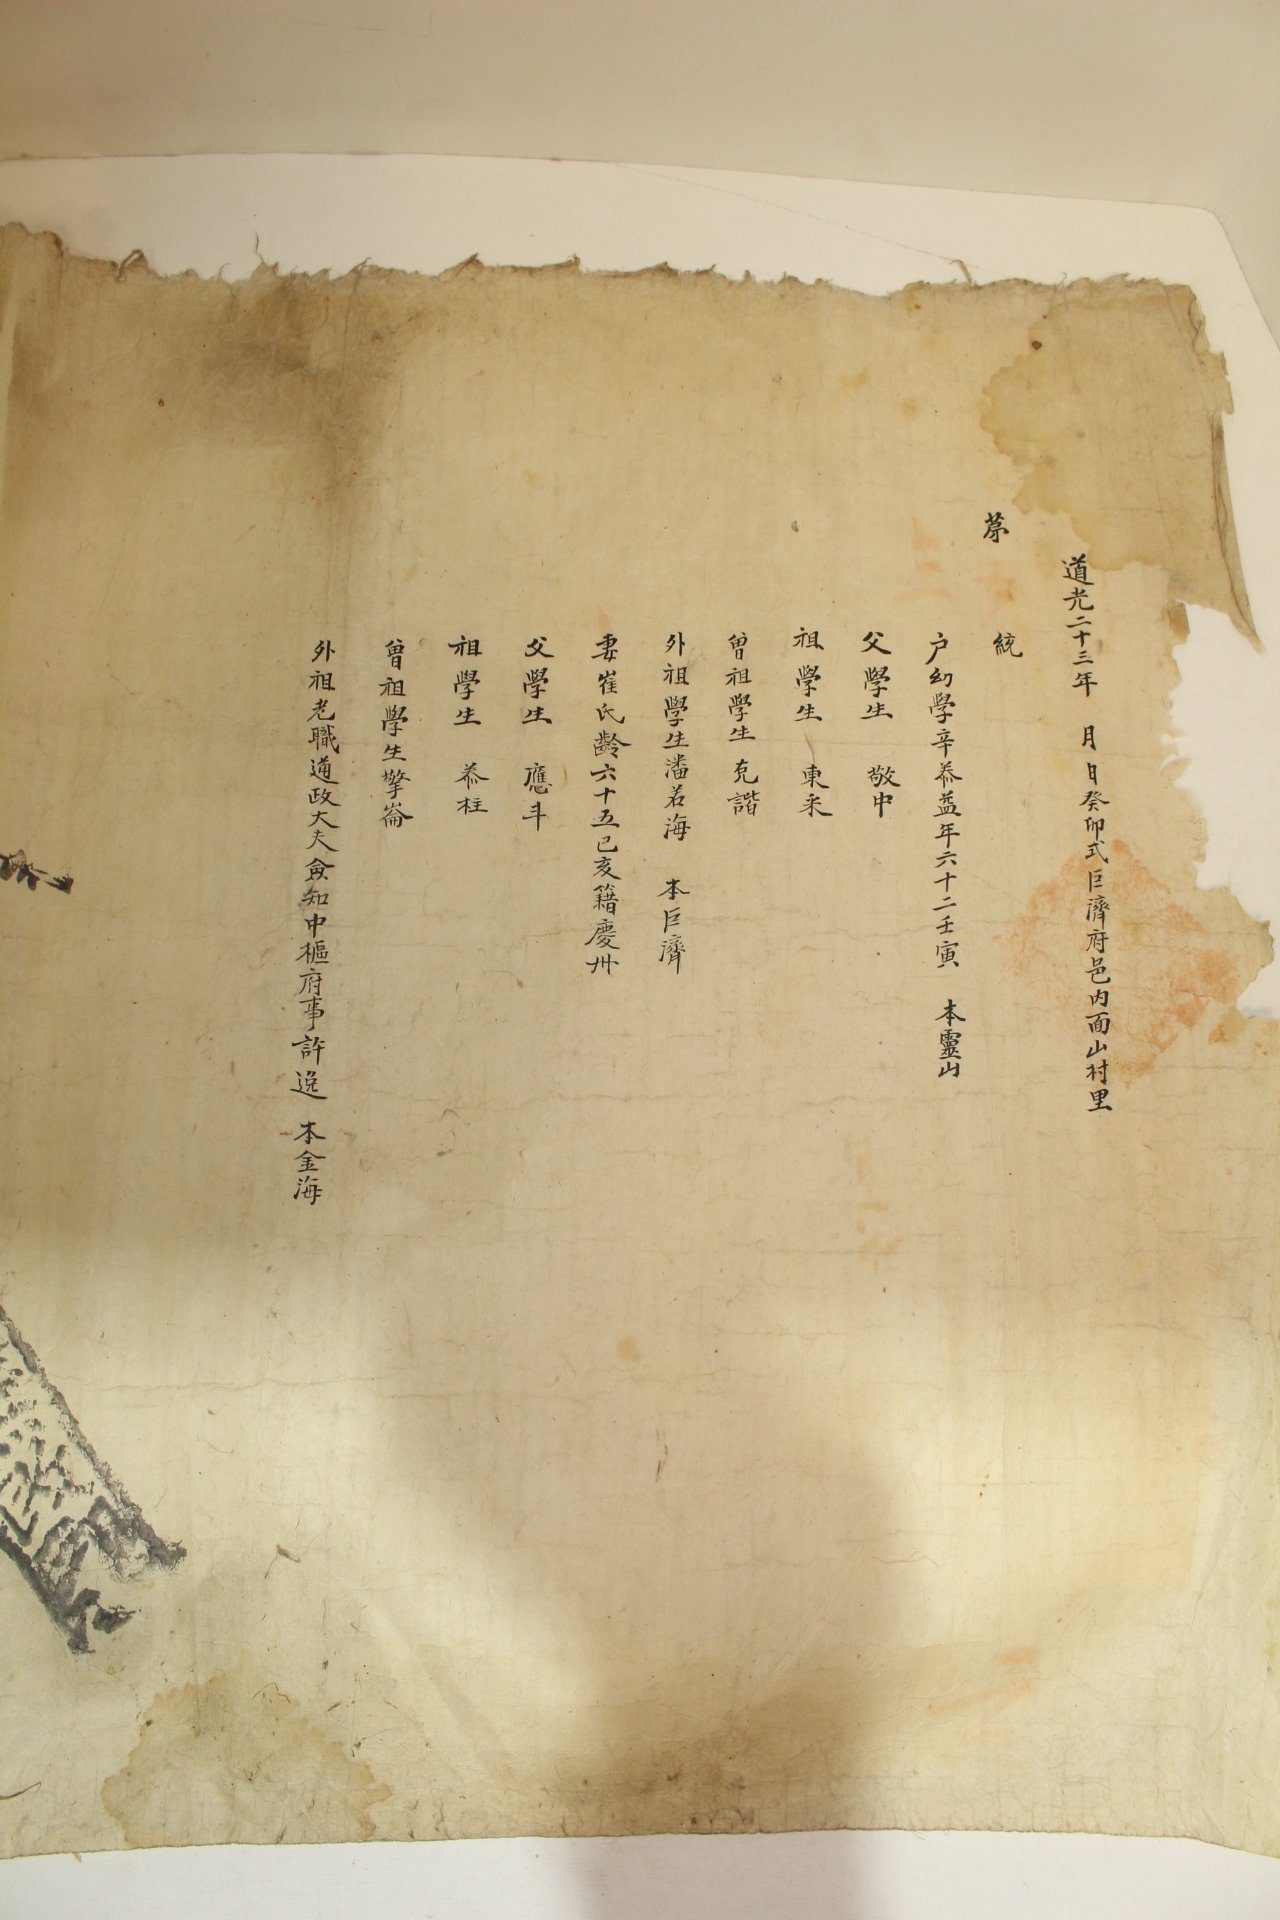 道光二十三年 月 日癸卯式巨濟府邑內面山村里
茅 統
戶幼學辛恭益年六十二壬寅 本靈山
父學生 敬中
祖學生 東采
曾祖學生 克諧
外祖學生潘若海 本巨濟
妻崔氏齡六十五己亥籍慶州
父學生 應斗
祖學生 恭柱
曾祖學生擎崙
外祖老職通政大夫僉知中樞府事許逸 本金海